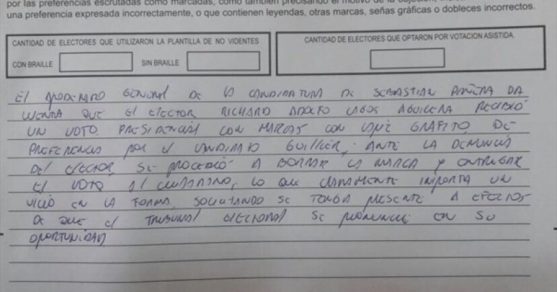 por las preferencias escrutadas como marcadas, como también precisando el motivo de la objeción,
una preferencia expresada incorrectamente, o que contienen leyendas, otras marcas, señas gráficas o dobleces incorrectos.
CANTIDAD DE ELECTORES QUE UTILIZARON LA PLANTILLA DE NO VIDENTES
CON BRAILLE
SIN BRAILLE
CANTIDAD DE ELECTORES QUE OPTARON POR VOTACION ASISTIDA
El APODERADO GENERAL DE LA CANDIDATURA DE SEBASTIAN PIÑERA DA
CUENTA QUE El ELECTOR RICHARD ADOLFO LAGOS AGUILERA RECIBIÓ
UN VOTO PRESIDENCIAL CON MARCAS CON LAPIZ GRAFITO DE
PREFERENCIA POR El CANDIDATO GUILLIER, ANTE LA DENUNCIA
DEL ELECTOR SE PROCEDIÓ A BORRAR LA MARCA Y ENTREGAR
El VOTO AL CIUDADANO, LO QUE CLARAMENTE IMPORTA UN
VICIO EN LA FORMA, SOLICITANDO SE TENGA PRESENTE A EFECTOS
DE QUE El TRIBUNAL ELECTORAL SE PRONUNCIE EN SU
OPORTUNIDAD